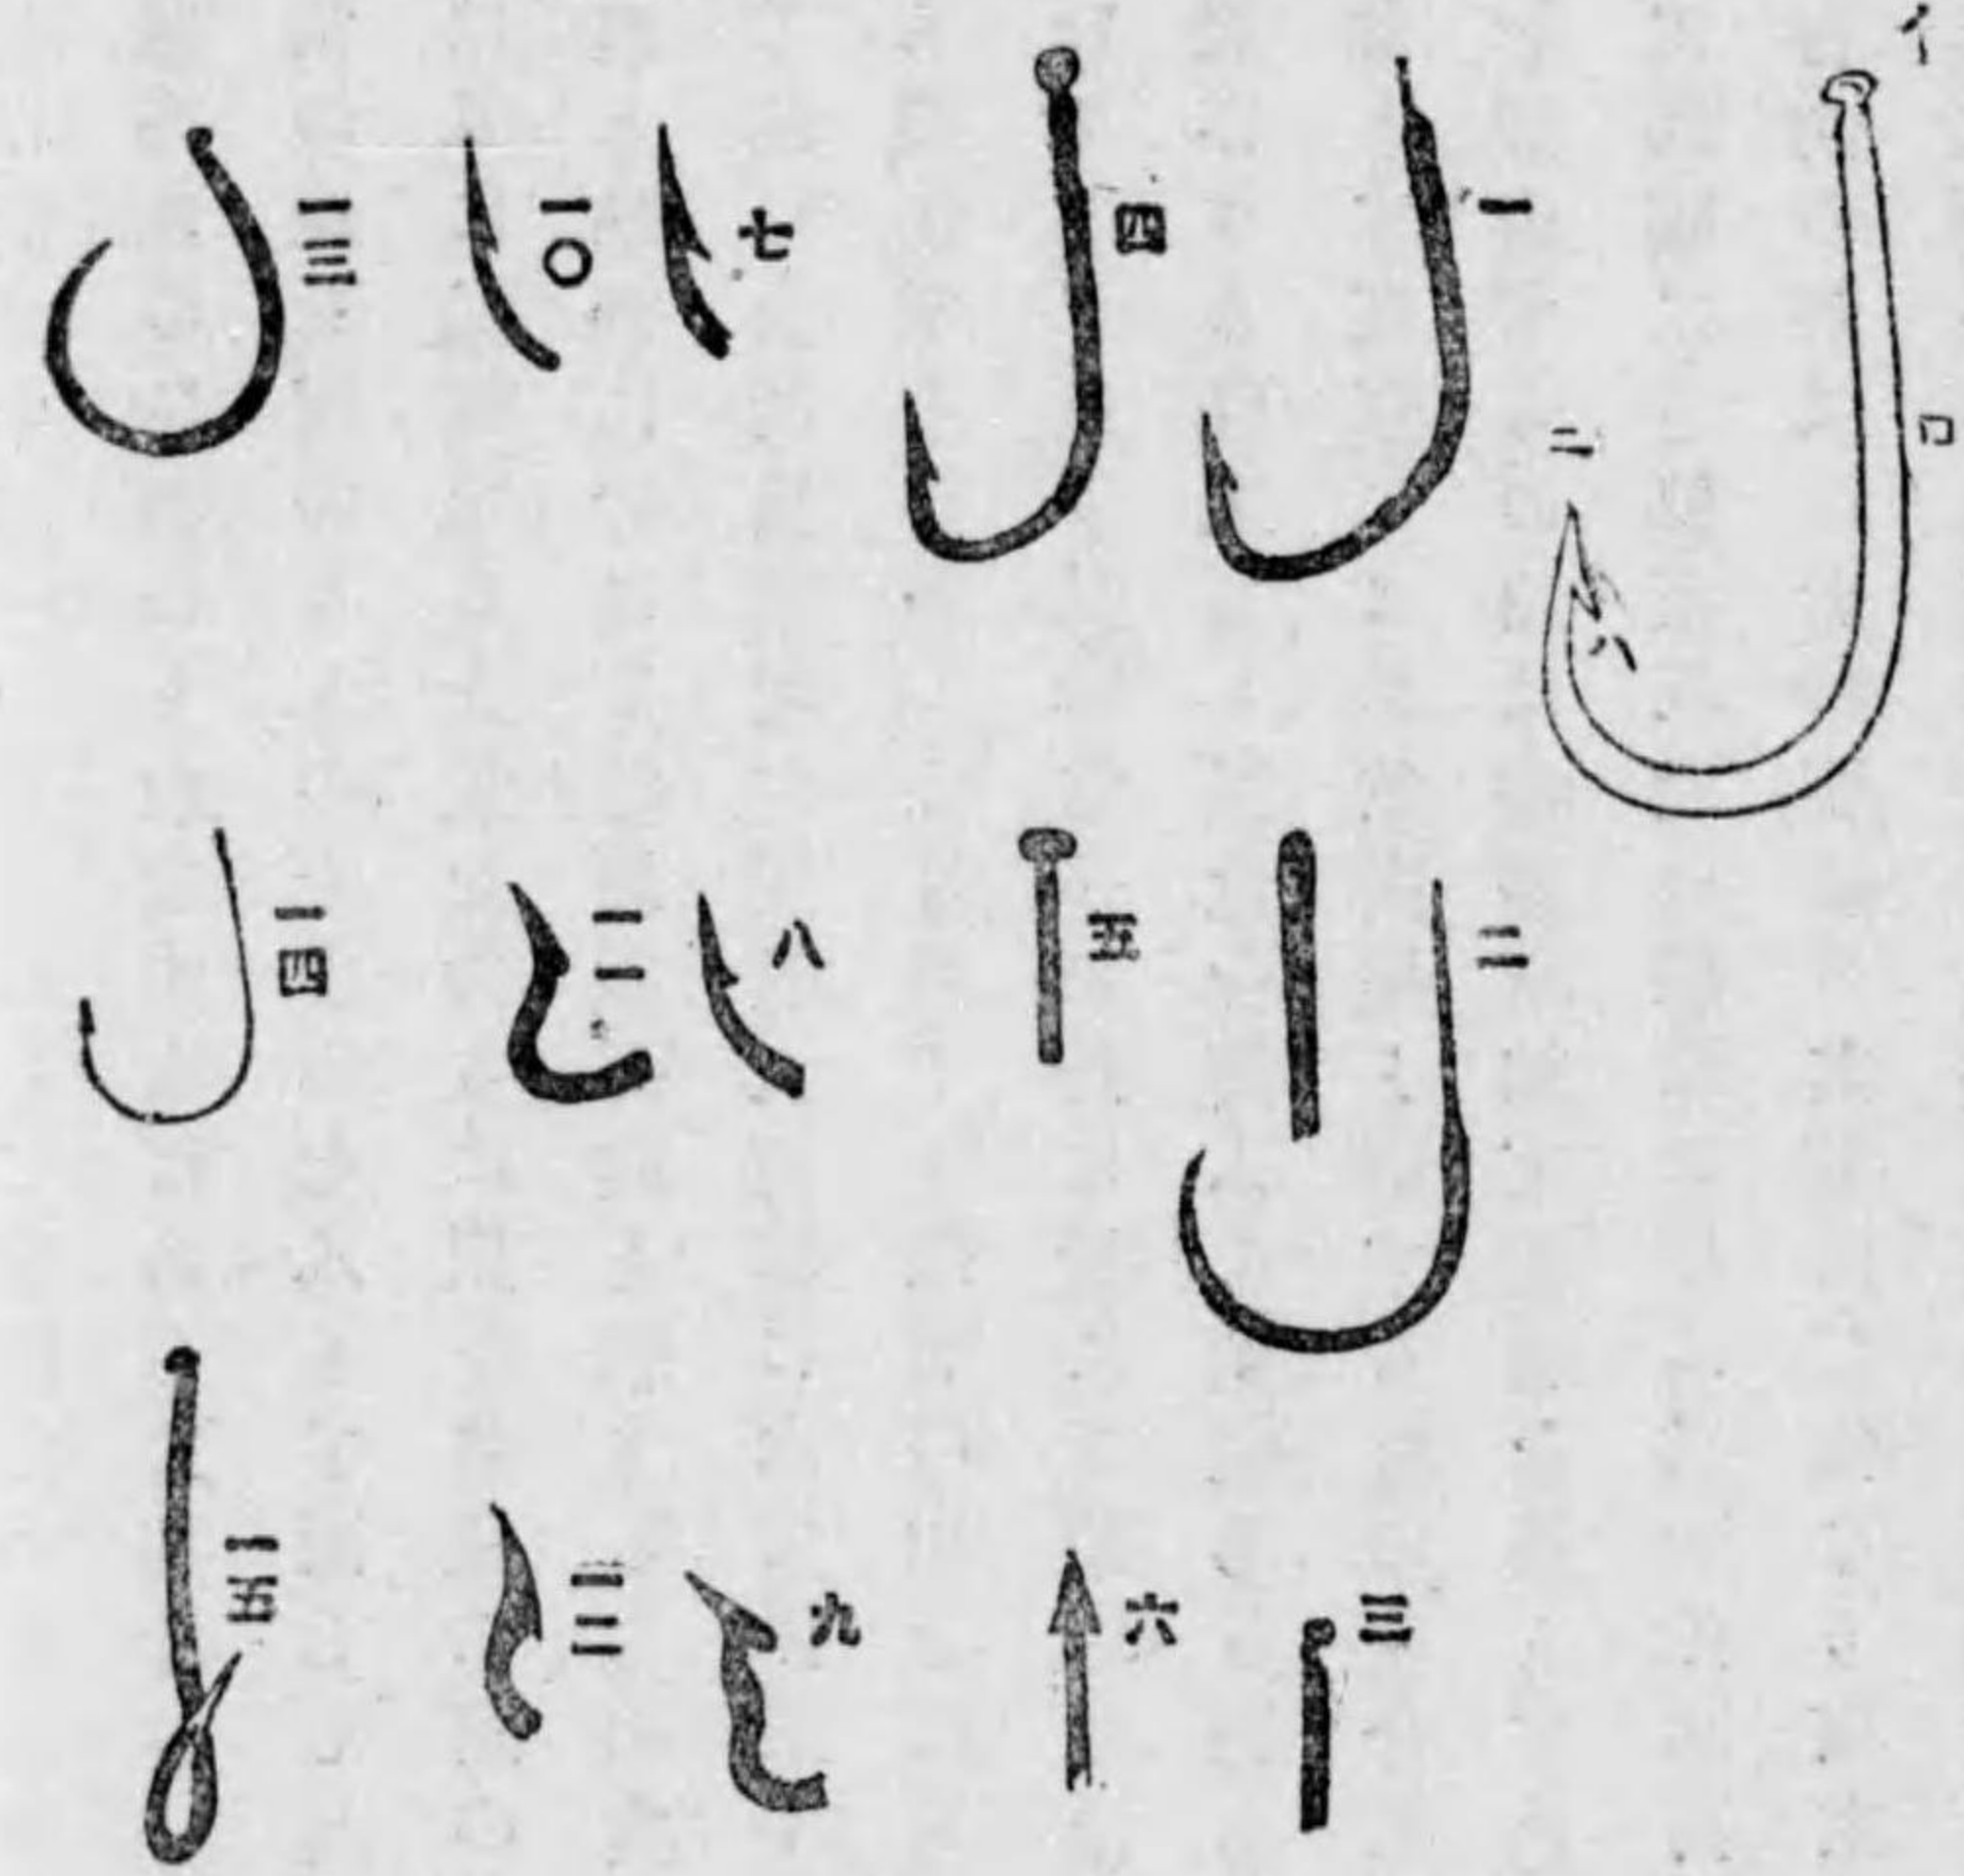 イ
ロ
ハ
ニ
一
二
三
四
五
六
七
八
九
一〇
一一
一二
一三
一四
一五